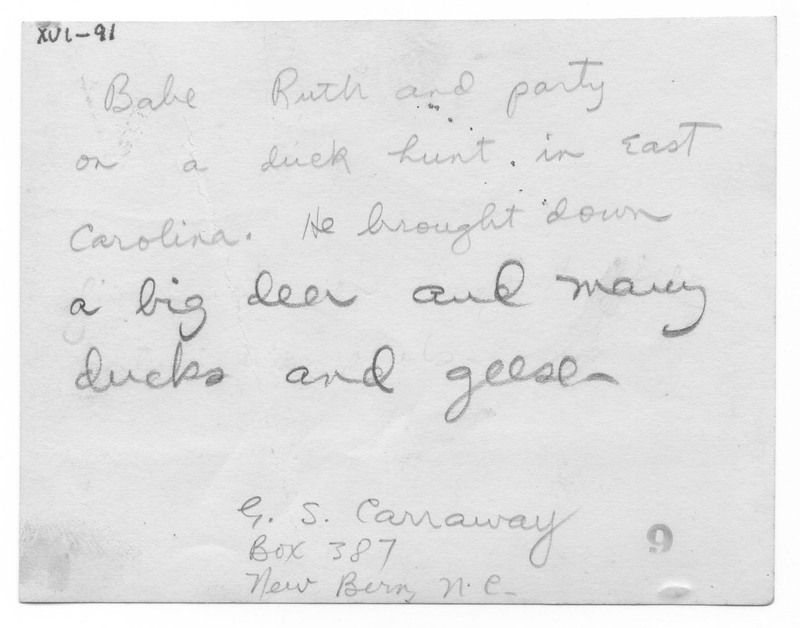 XVI-91
Babe Ruth and party
on a duck hunt in East
Carolina. He brought down
a big deer and many
ducks and geese
G. S. Carraway
Box 387
New Bern, N.C.
9